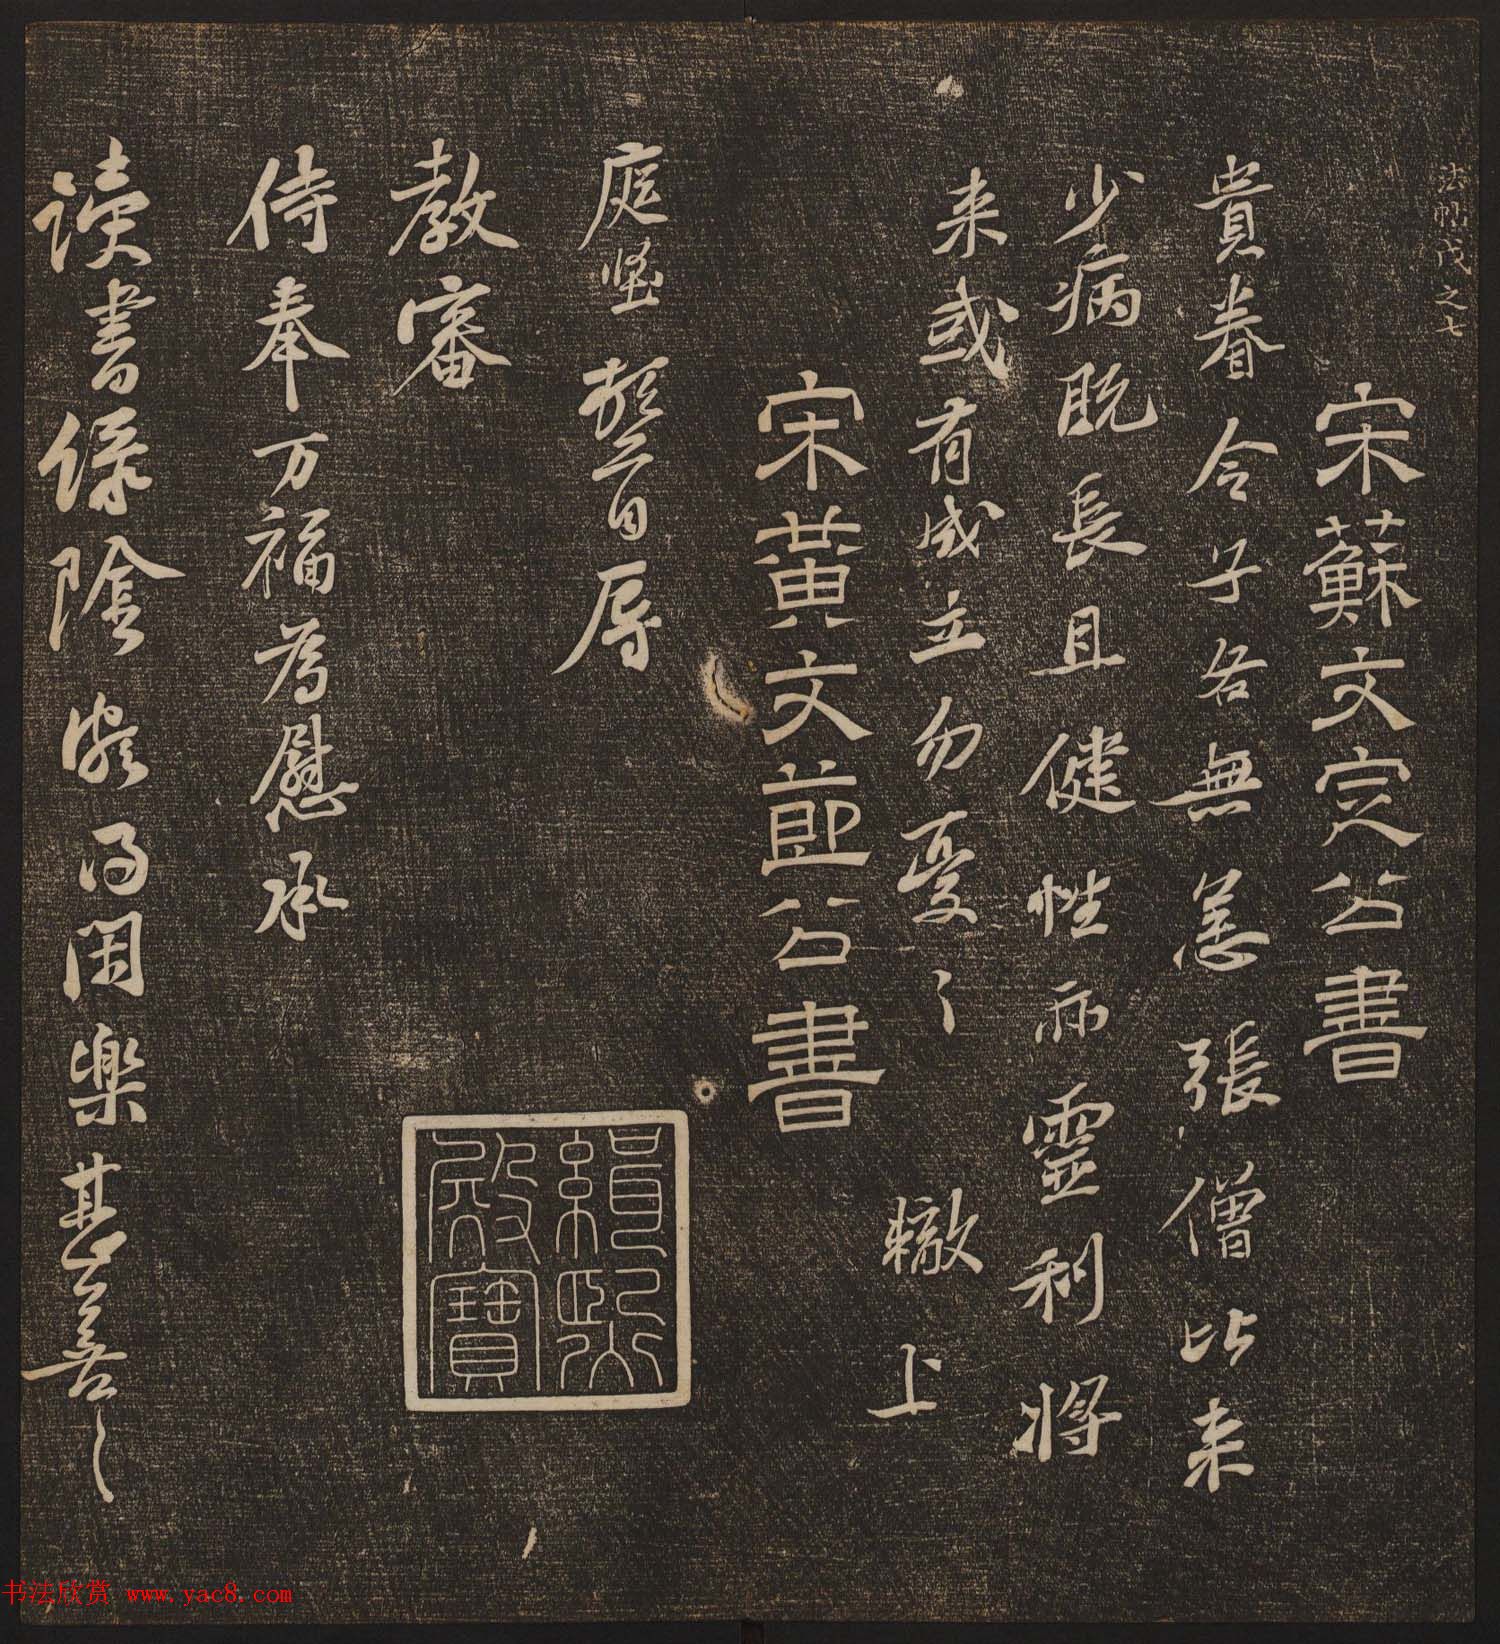 法帖戊之七
宋蘇文定公書
貴眷令子各無恙張僧比来
少病既長且健性亦靈利将
来或有成立勿憂〻
轍上
宋黄文節公書
庭堅頓首辱
教審
侍奉万福為慰承
读書緑陰頗得闲樂甚善〻
緝熙殿寶
书法欣赏 www.yac8.com